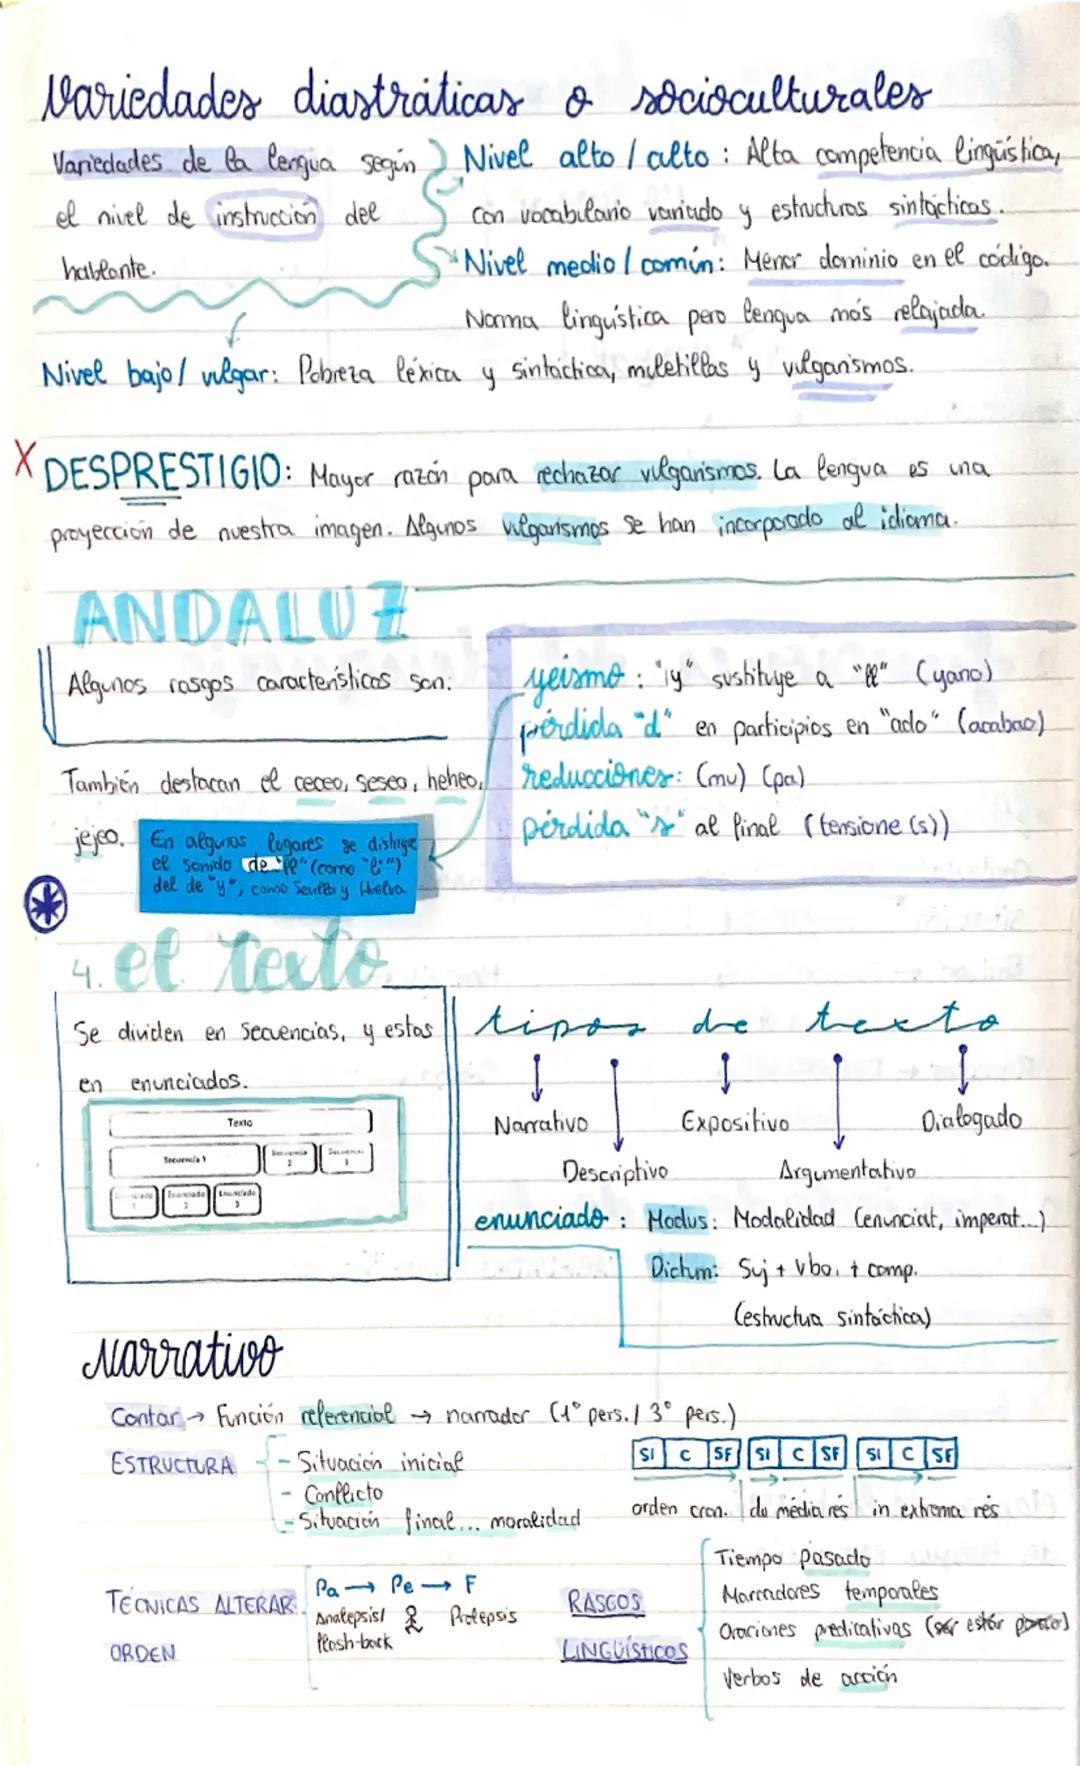 Variedades diastráticas o socioculturales
Variedades de la lengua según
el nivel de instrucción del
hablante.
Nivel alto / alto : Alta competencia lingüística,
con vocabulario variado y estructuras sintácticas.
Nivel medio / común: Menor dominio en el código.
Norma lingüística pero lengua más relajada.
Nivel bajo/ vulgar: Pobreza léxica y sintáctica, muletillas y vulgarismos.
X DESPRESTIGIO: Mayor razón para rechazar vulgarismos. La lengua es una
proyección de nuestra imagen. Algunos vulgarismos se han incorporado al idioma.
ANDALUZ
Algunos rasgos característicos son:
yeísmo : "y" sustituye a "ll" (yano)
pérdida "d" en participios en "ado" (acabao)
reducciones: (mu) (pa)
pérdida "s" al final (tensione(s))
También destacan el ceceo, seseo, heheo,
jejeo.
En algunos lugares se distingue
el sonido de "ll" (como "li")
del de "y", como Sevilla y Huelva.
4. el texto
Se dividen en secuencias, y estas
en enunciados.
Texto
Secuencia 1
Secuencia 2
Secuencia 3
Enunciado 1
Enunciado 2
Enunciado 3
tipos de texto
Narrativo
Expositivo
Dialogado
Descriptivo
Argumentativo
enunciado : Modus: Modalidad (enunciat, imperat...)
Dictum: Suj + Vbo. + comp.
(estructura sintáctica)
Narrativo
Contar → Función referencial → narrador (1º pers. / 3º pers.)
ESTRUCTURA
- Situación inicial
- Conflicto
- Situación final... moralidad
SI C SF SI C SF SI C SF
orden cron. de media res in extrema res
TÉCNICAS ALTERAR
ORDEN
Pa → Pe → F
Analepsis/ Prolepsis
flash-back
RASGOS
LINGÜÍSTICOS
Tiempo pasado
Marcadores temporales
Oraciones predicativas (ser estar parecer)
Verbos de acción